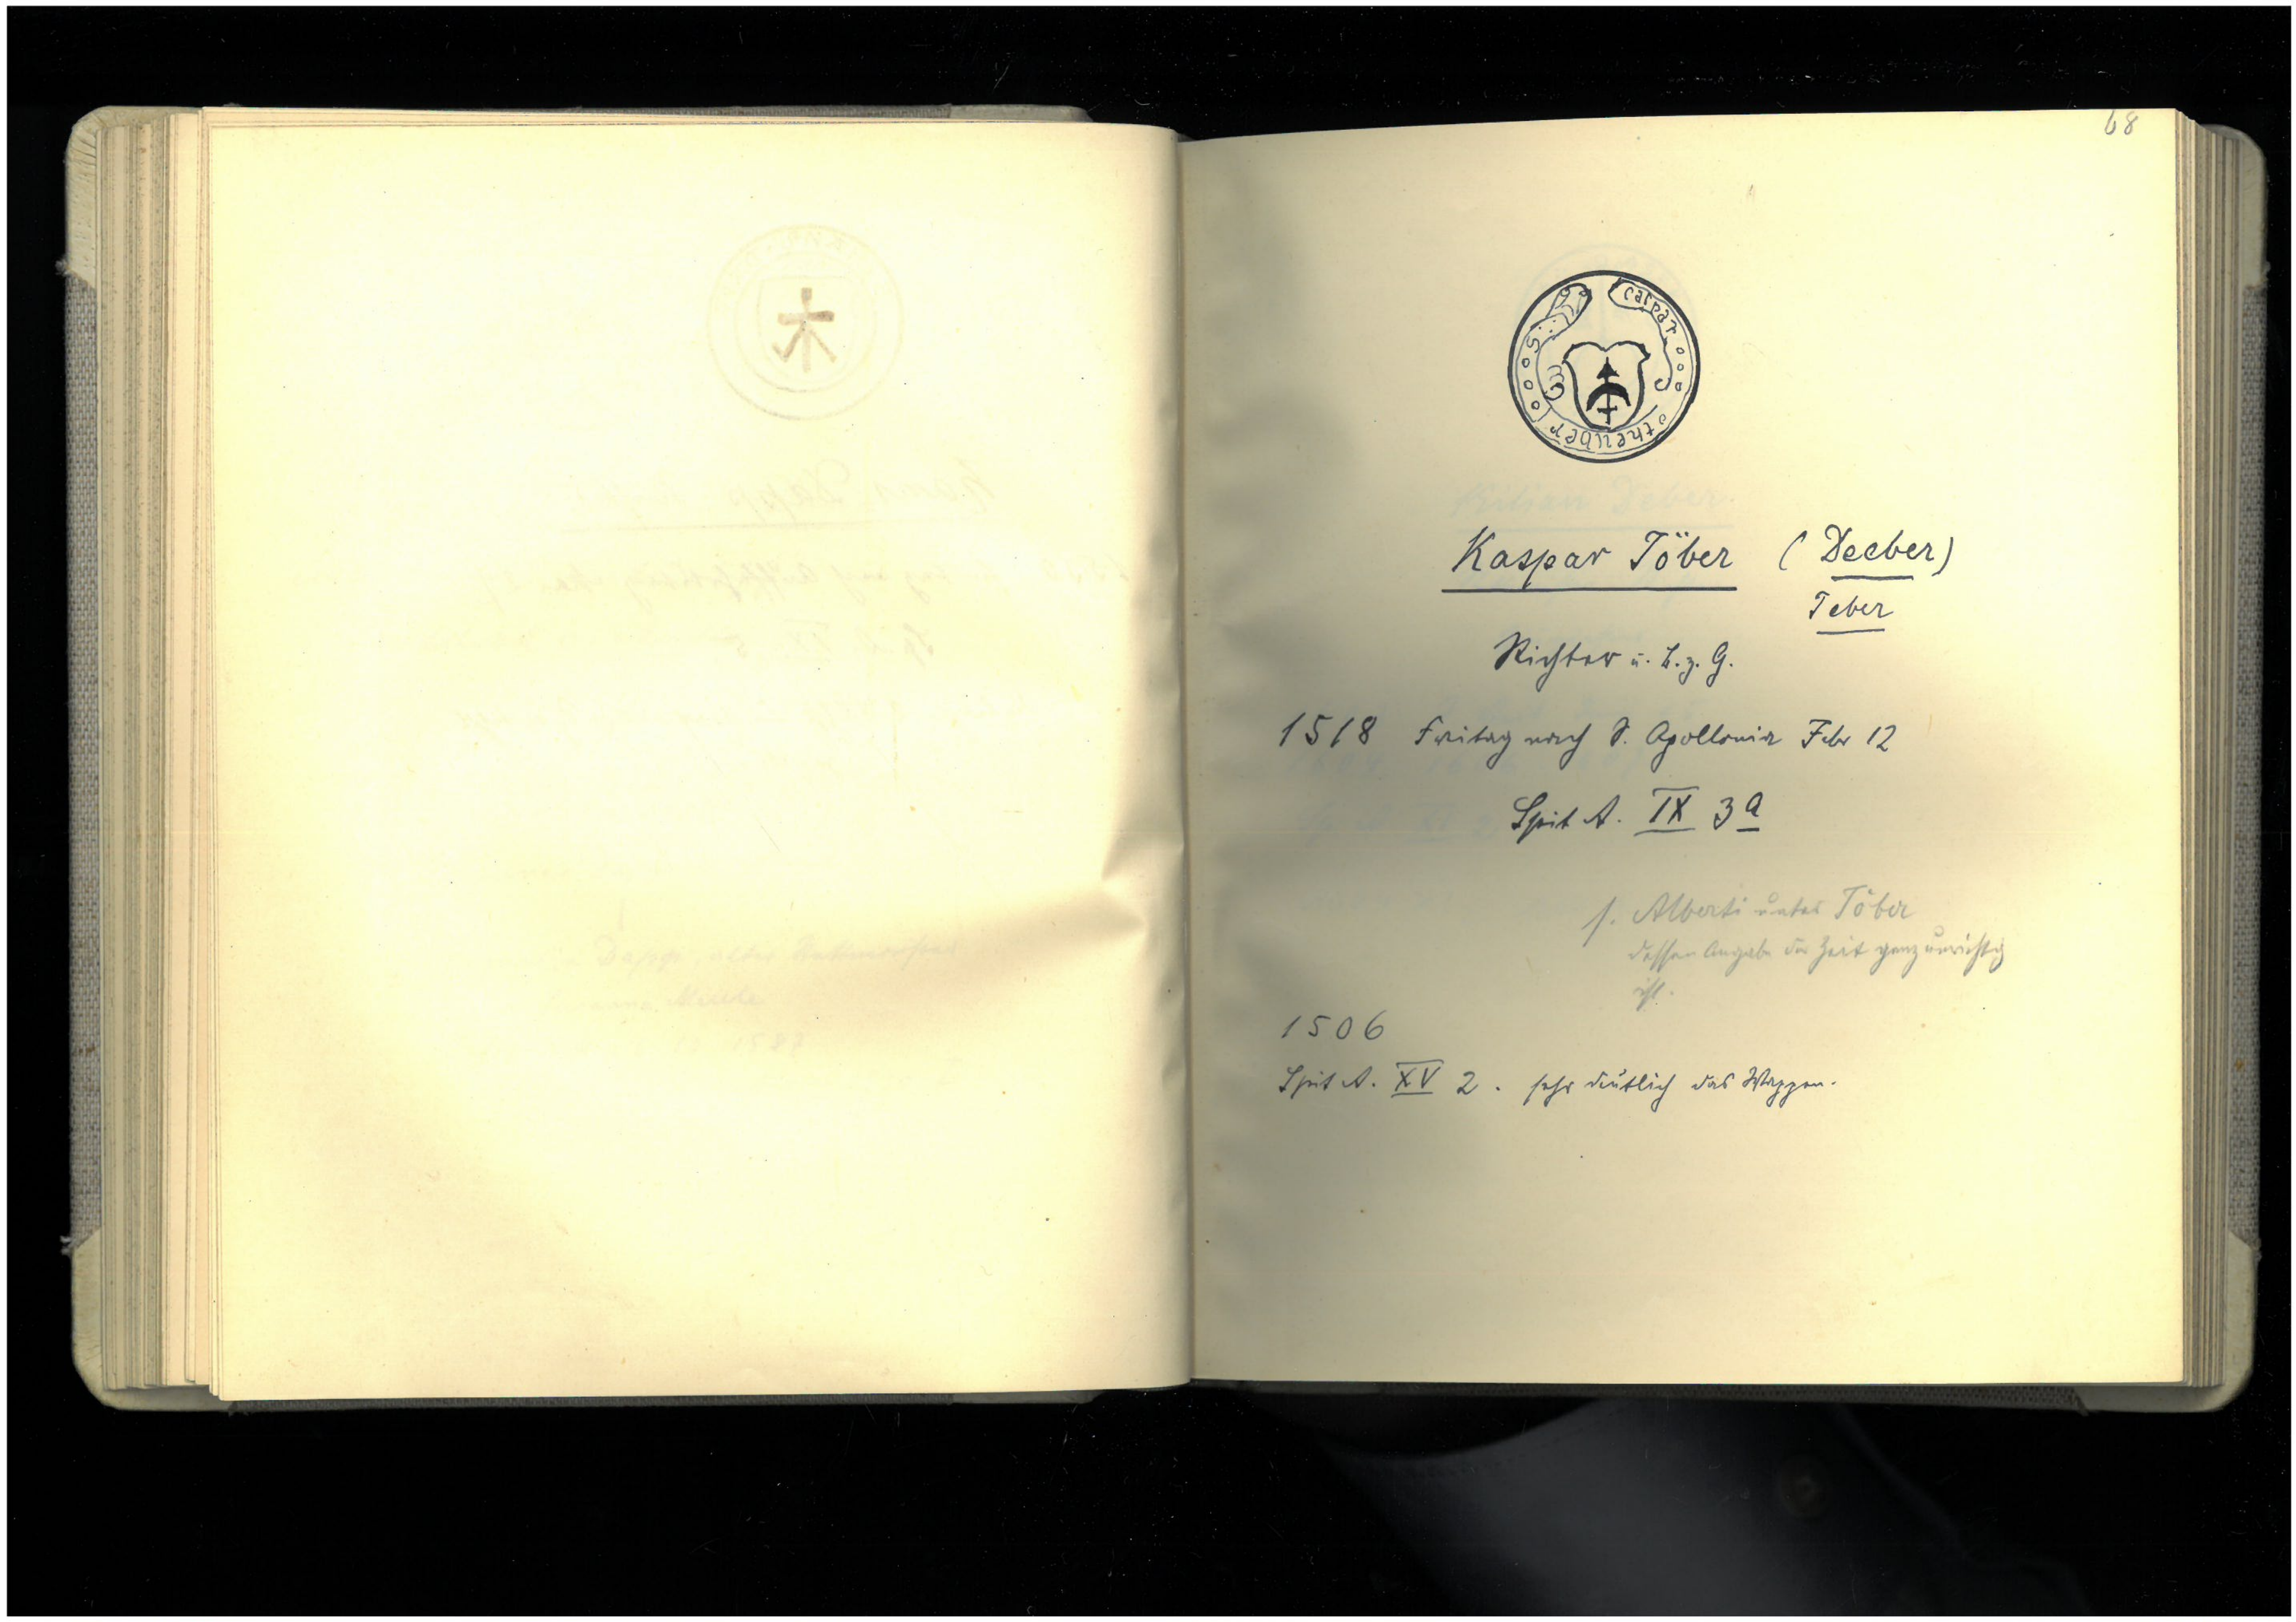 68
S caspar theuber
Kaspar Töber (Deeber)
Teber
Richter u. B. z. G.
1518 Freitag nach S. Apollonia Febr 12
Spit A. IX 3a
s. Alberti unter Töber
dessen Angabe der Zeit ganz unrichtig
ist.
1506
Spit A. XV 2. sehr deutlich das Wappen.